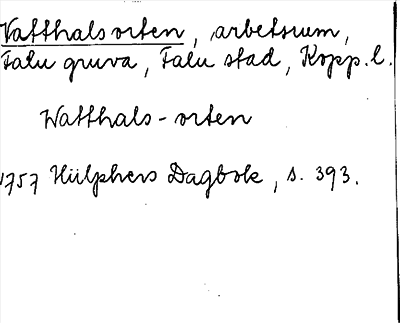 Vatthalsorten, arbetsrum,
Falu gruva, Falu stad, Kopp.l.
Watthals-orten
1757 Hülphers Dagbok, s. 393.